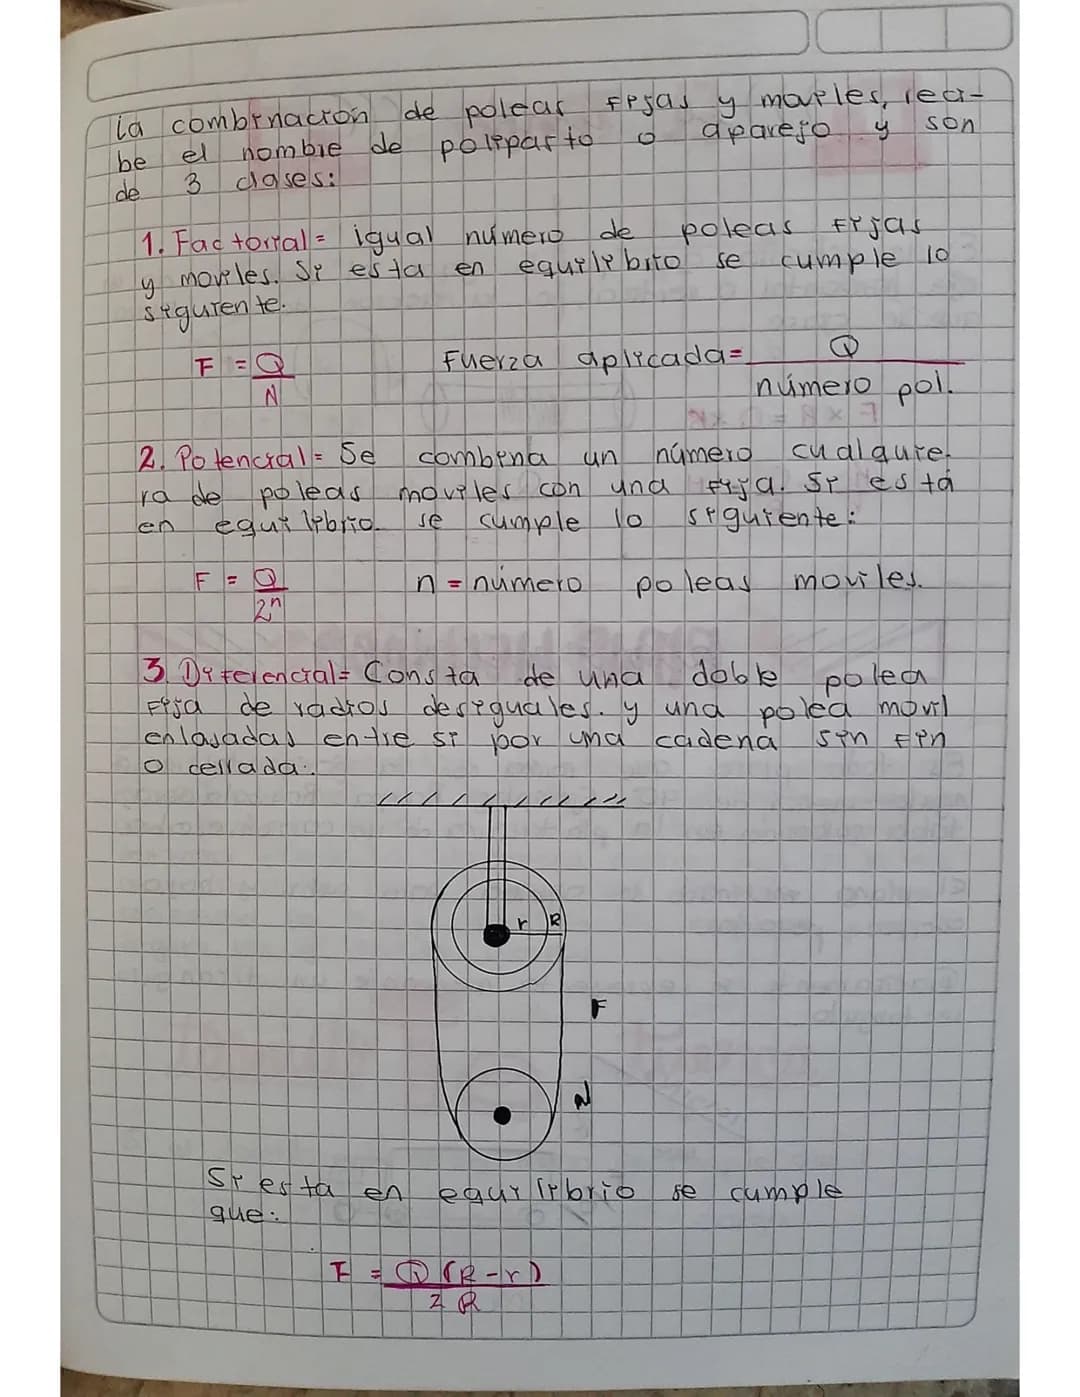 La combinación de poleas fijas y moviles, reci-
be el nombre de poliparto o aparejo y son
de 3 clases:
1. Factorial = igual número de poleas fijas
y moviles. Si esta en equilibrio se cumple lo
siguiente.
F = Q/N Fuerza aplicada = Q/número pol.
2. Potencial = Se combina un número cualquie-
ra de poleas moviles con una fija. Si está
en equilibrio se cumple lo siguiente:
F = Q/2ⁿ n = número poleas moviles.
3. Diferencial = Consta de una doble polea
Fija de radios desiguales. y una polea movil
enlasadas entre si por una cadena sin fin
o cerrada.
r R
F
N
Si esta en equilibrio se cumple
que:
F = Q (R-r)/2 R